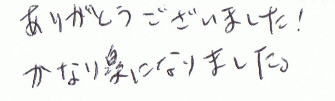 ありがとうございました!
かなり楽になりました。